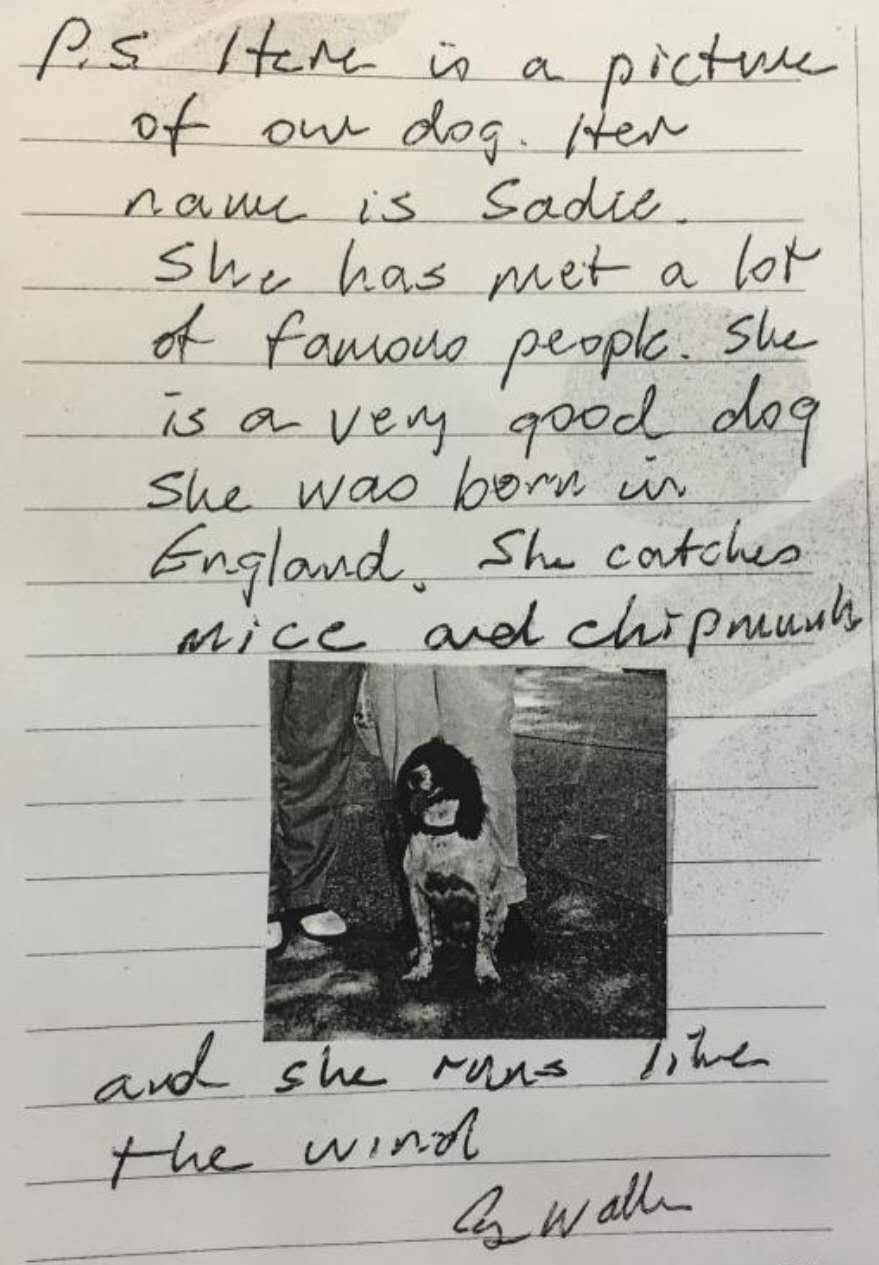 P.S. Here is a picture
of our dog. Her
name is Sadie.
She has met a lot
of famous people. She
is a very good dog
She was born in
England. She catches
mice and chipmunks
and she runs like
the wind
Walker